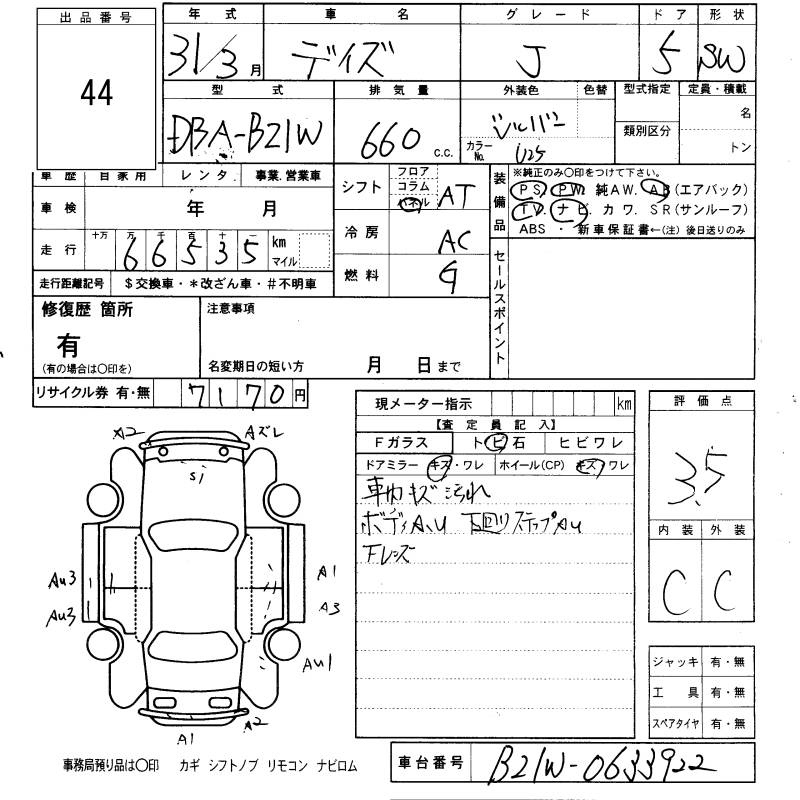 出品番号 年式 車名 グレード ドア 形状
44 31/3月 デイズ J 5 SW
型式 排気量 外装色 色替 型式指定 定員・積載
DBA-B21W 660 c.c. シルバー カラーNo. U25 類別区分 名 トン
車歴 自家用 レンタ 事業.営業車
車検 年 月
走行 十万 万 千 百 十 66535 km マイル
走行距離記号 $交換車・*改ざん車・#不明車
シフト フロア コラム パネル AT
冷房 AC
燃料 G
装備品 ※純正のみ〇印をつけて下さい。
PS. PW. 純AW. AB(エアバック)
TV. ナビ. カワ. SR(サンルーフ)
ABS ・ 新車保証書←(注) 後日送りのみ
セールスポイント
修復歴 箇所
有
(有の場合は〇印を)
注意事項
名変期日の短い方 月 日まで
リサイクル券 有・無 7170円
現メーター指示 km
【査定員記入】
Fガラス トビ石 ヒビワレ
ドアミラー キズ・ワレ ホイール(CP) キズ ワレ
車内キズ汚れ
ボディA.U 下廻りステップAU
Fレンズ
評価点
3.5
内装 外装
C C
ジャッキ 有・無
工具 有・無
スペアタイヤ 有・無
A2 Aズレ
S1
AU3 A1
AU3 A3
AU1
A1 A2
事務局預り品は〇印 カギ シフトノブ リモコン ナビロム
車台番号 B21W-0633922